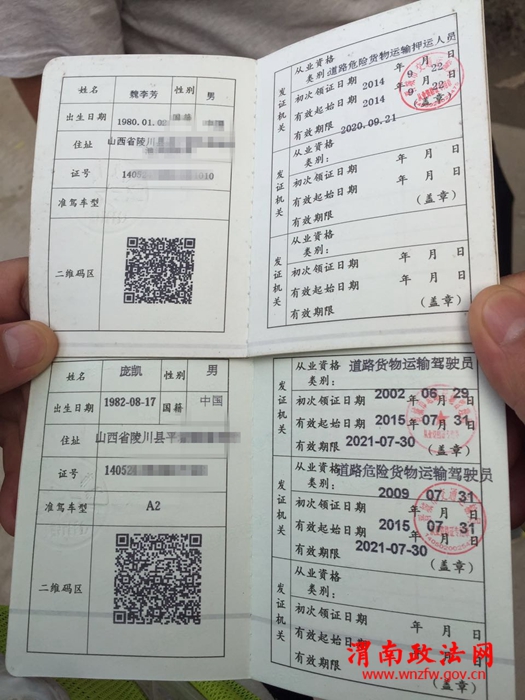 姓名 魏李芳 性别 男
出生日期 1980.01.0 国籍
住址 山西省陵川县
证号 14052 1010
准驾车型
二维码区
发证机关
从业资格类别 道路危险货物运输押运人员
初次领证日期 2014 年 9 月 22 日
有效起始日期 2014 年 9 月 22 日
有效期限 2020.09.21 (盖章)
发证机关
从业资格类别:
初次领证日期 年 月 日
有效起始日期 年 月 日
有效期限 (盖章)
发证机关
从业资格类别:
初次领证日期 年 月 日
有效起始日期 年 月 日
有效期限 (盖章)
姓名 庞凯 性别 男
出生日期 1982-08-17 国籍 中国
住址 山西省陵川县平
证号 14052
准驾车型 A2
二维码区
发证机关
从业资格类别: 道路货物运输驾驶员
初次领证日期 2002 年 06 月 29 日
有效起始日期 2015 年 07 月 31 日
有效期限 2021-07-30 (盖章)
发证机关
从业资格类别: 道路危险货物运输驾驶员
初次领证日期 2009 年 07 月 31 日
有效起始日期 2015 年 07 月 31 日
有效期限 2021-07-30 (盖章)
发证机关
从业资格类别:
初次领证日期 年 月 日
有效起始日期
有效期限
渭南政法网
www.wnzfw.gov.cn